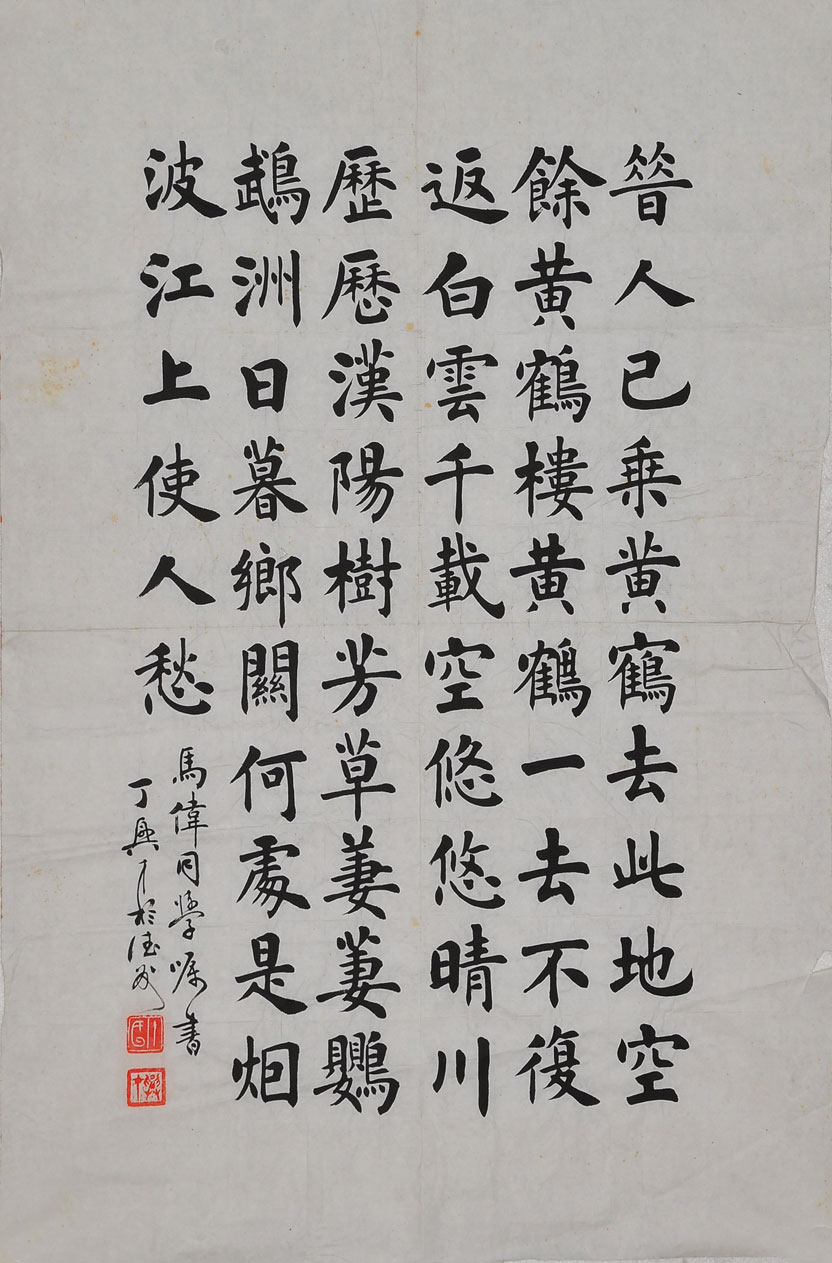 昔人已乘黄鶴去此地空
餘黄鶴樓黄鶴一去不復
返白雲千載空悠悠晴川
歷歷漢陽樹芳草萋萋鸚
鵡洲日暮鄉關何處是烟
波江上使人愁
馬偉同學嘱書
丁興才於德州